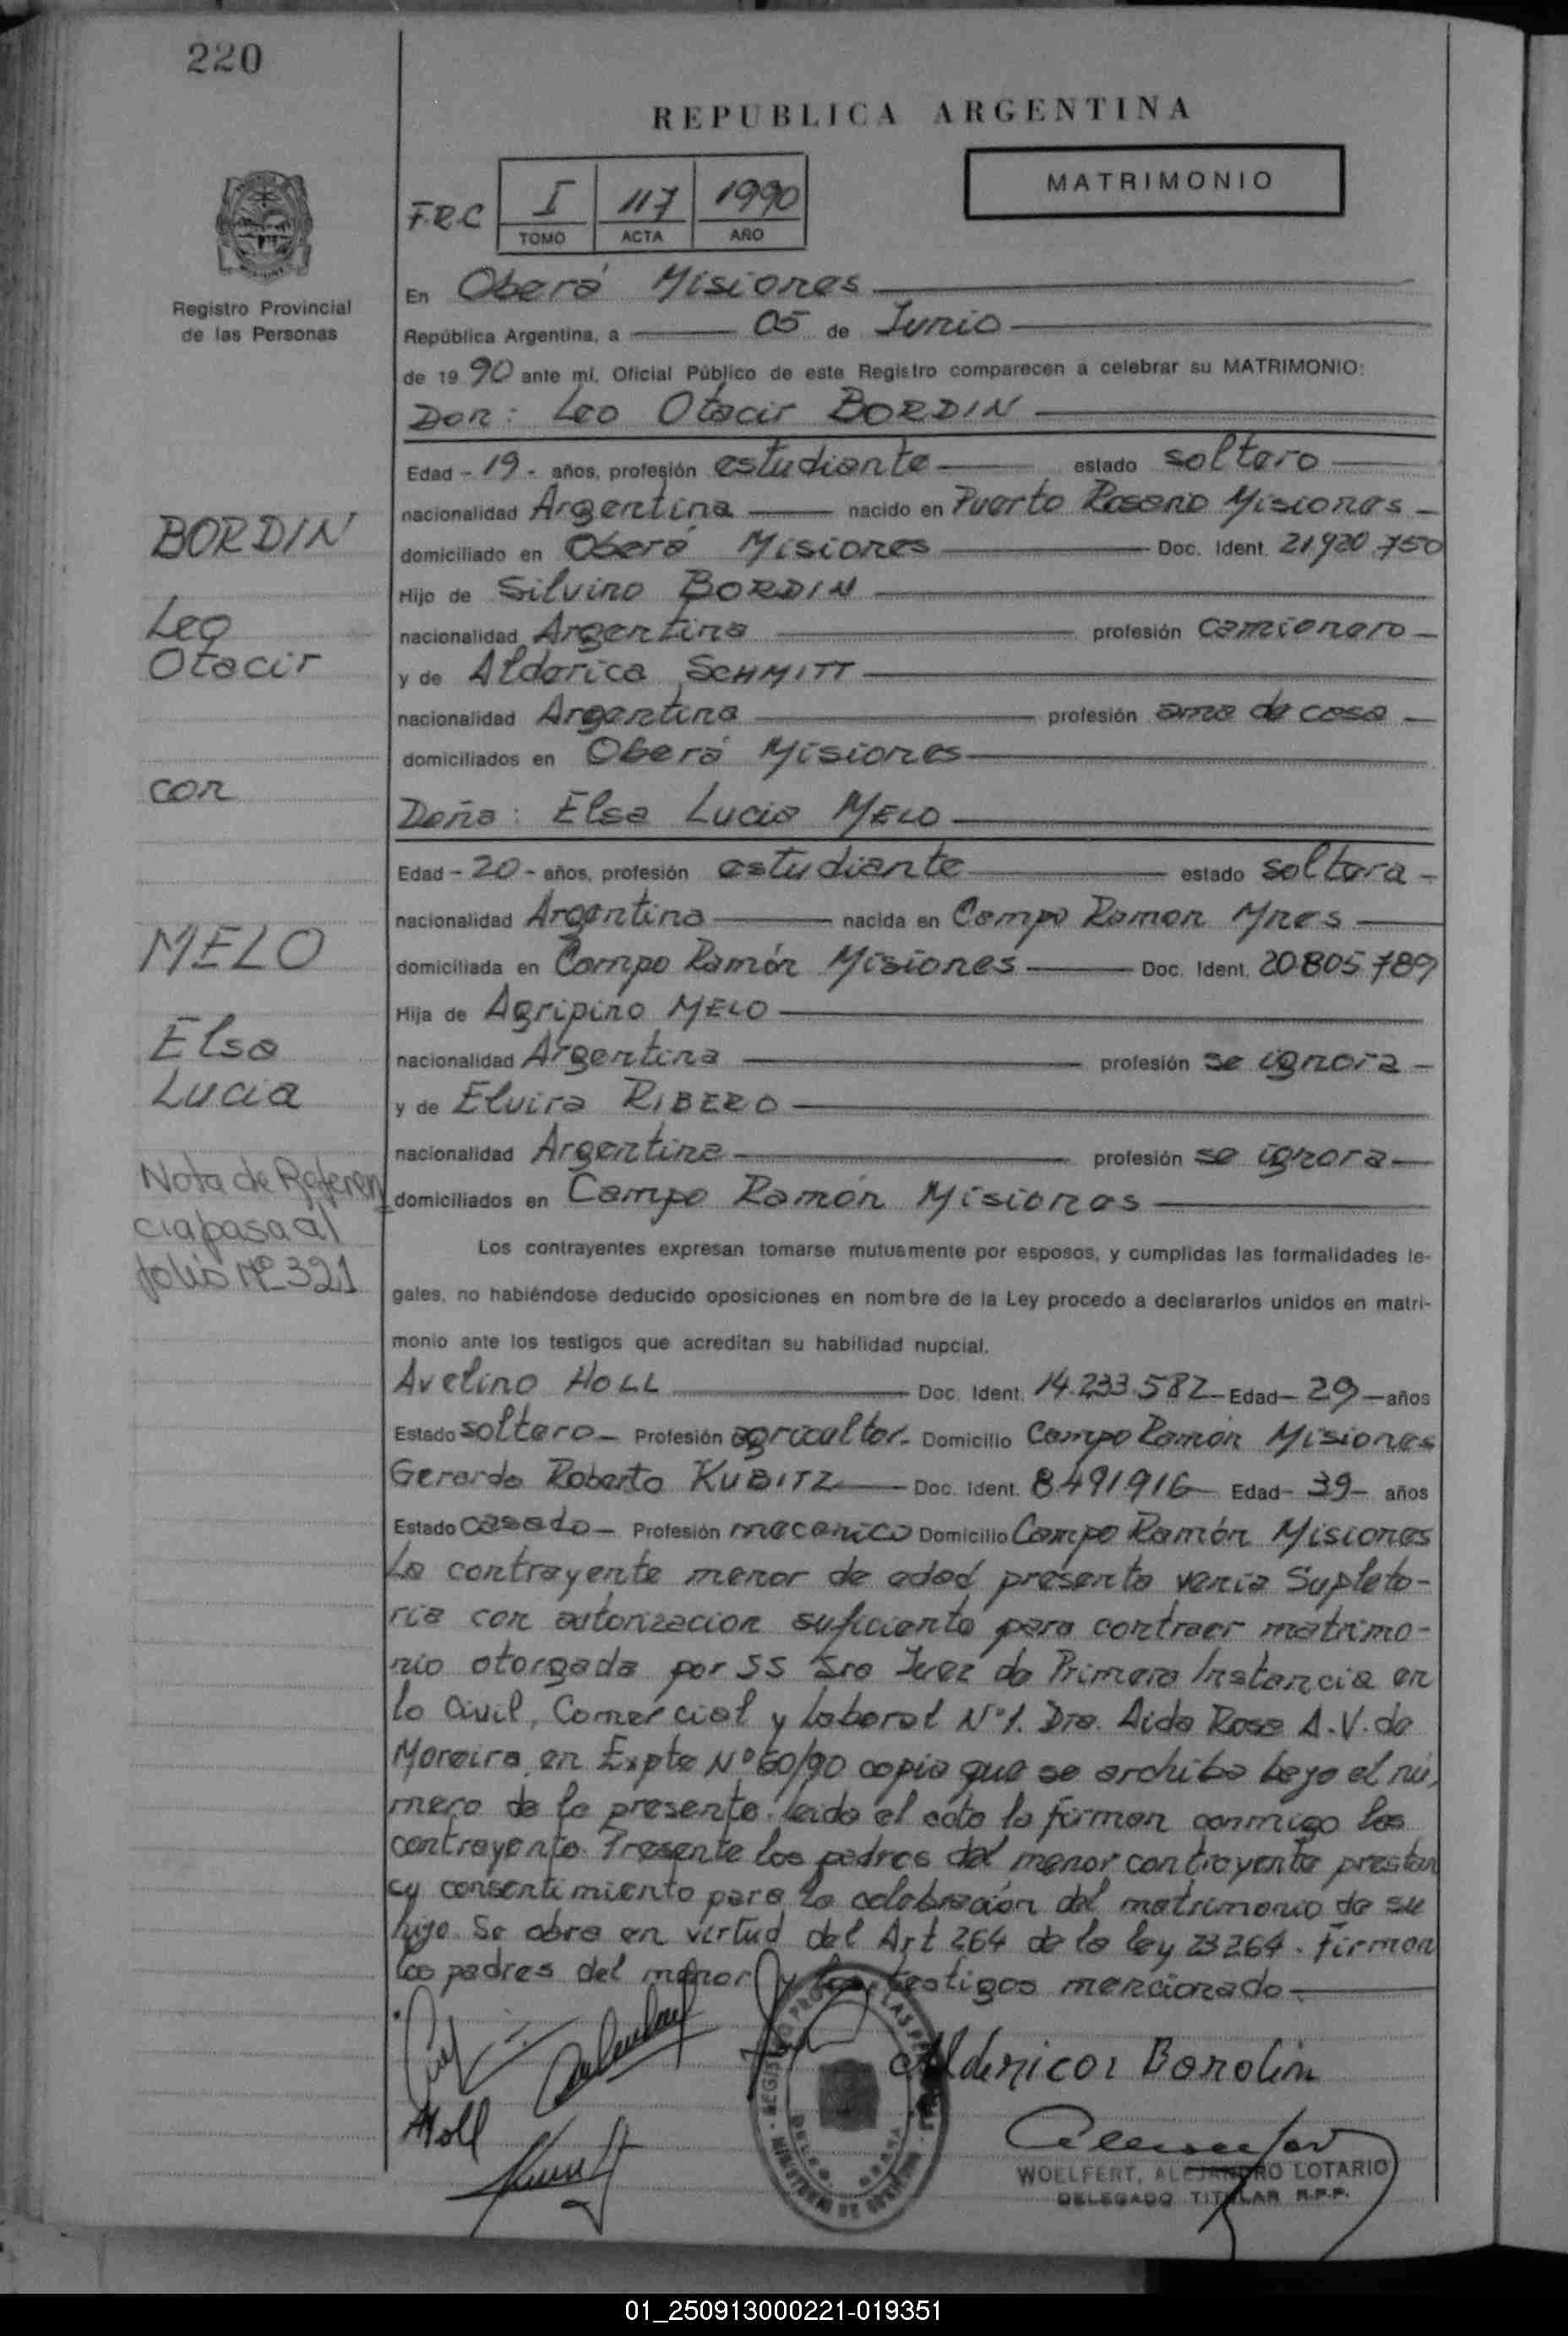 220
REPUBLICA ARGENTINA
MATRIMONIO
F.R.C I 117 1990
TOMO ACTA AÑO
Registro Provincial
de las Personas
En Oberá Misiones
República Argentina, a 05 de Junio
de 1990 ante mí, Oficial Público de este Registro comparecen a celebrar su MATRIMONIO:
Don: Leo Otacir BORDIN
Edad -19- años, profesión estudiante estado soltero
nacionalidad Argentina nacido en Puerto Rosario Misiones
domiciliado en Oberá Misiones Doc. Ident. 21920.750
Hijo de Silvino BORDIN
nacionalidad Argentina profesión camionero
y de Alderica SCHMITT
nacionalidad Argentina profesión ama de casa
domiciliados en Oberá Misiones
Doña: Elsa Lucia MELO
Edad -20- años, profesión estudiante estado soltera
nacionalidad Argentina nacida en Campo Ramon Mnes
domiciliada en Campo Ramón Misiones Doc. Ident. 20805789
Hija de Agripino MELO
nacionalidad Argentina profesión se ignora
y de Elvira RIBERO
nacionalidad Argentina profesión se ignora
domiciliados en Campo Ramón Misiones
BORDIN
Leo
Otacir
con
MELO
Elsa
Lucia
Nota de Referen
cia pasa al
folio Nº 321
Los contrayentes expresan tomarse mutuamente por esposos, y cumplidas las formalidades le-
gales, no habiéndose deducido oposiciones en nombre de la Ley procedo a declararlos unidos en matri-
monio ante los testigos que acreditan su habilidad nupcial.
Avelino HOLL Doc. Ident. 14.233.582 Edad 29 años
Estado soltero Profesión agricultor Domicilio Campo Ramón Misiones
Gerardo Roberto KUBITZ Doc. Ident. 8491916 Edad 39 años
Estado casado Profesión mecanico Domicilio Campo Ramón Misiones
La contrayente menor de edad presenta venia Supleto-
ria con autorizacion suficiente para contraer matrimo-
nio otorgada por SS Sra Juez de Primera Instancia en
lo Civil, Comercial y Laboral Nº1. Dra. Aida Rosa A.V. de
Moreira en Expte Nº 60/90 copia que se archiba bajo el nú,
mero de la presente. leida el acta la firman conmigo los
contrayente. Presente los padres del menor contrayente prestan
cy consentimiento para la celebración del matrimonio de su
hijo. Se obra en virtud del Art 264 de la ley 23264. Firman
los padres del menor y los testigos mencionado
Alderica Bordin
Holl
WOELFERT, ALEJANDRO LOTARIO
DELEGADO TITULAR R.P.P.
01_250913000221-019351